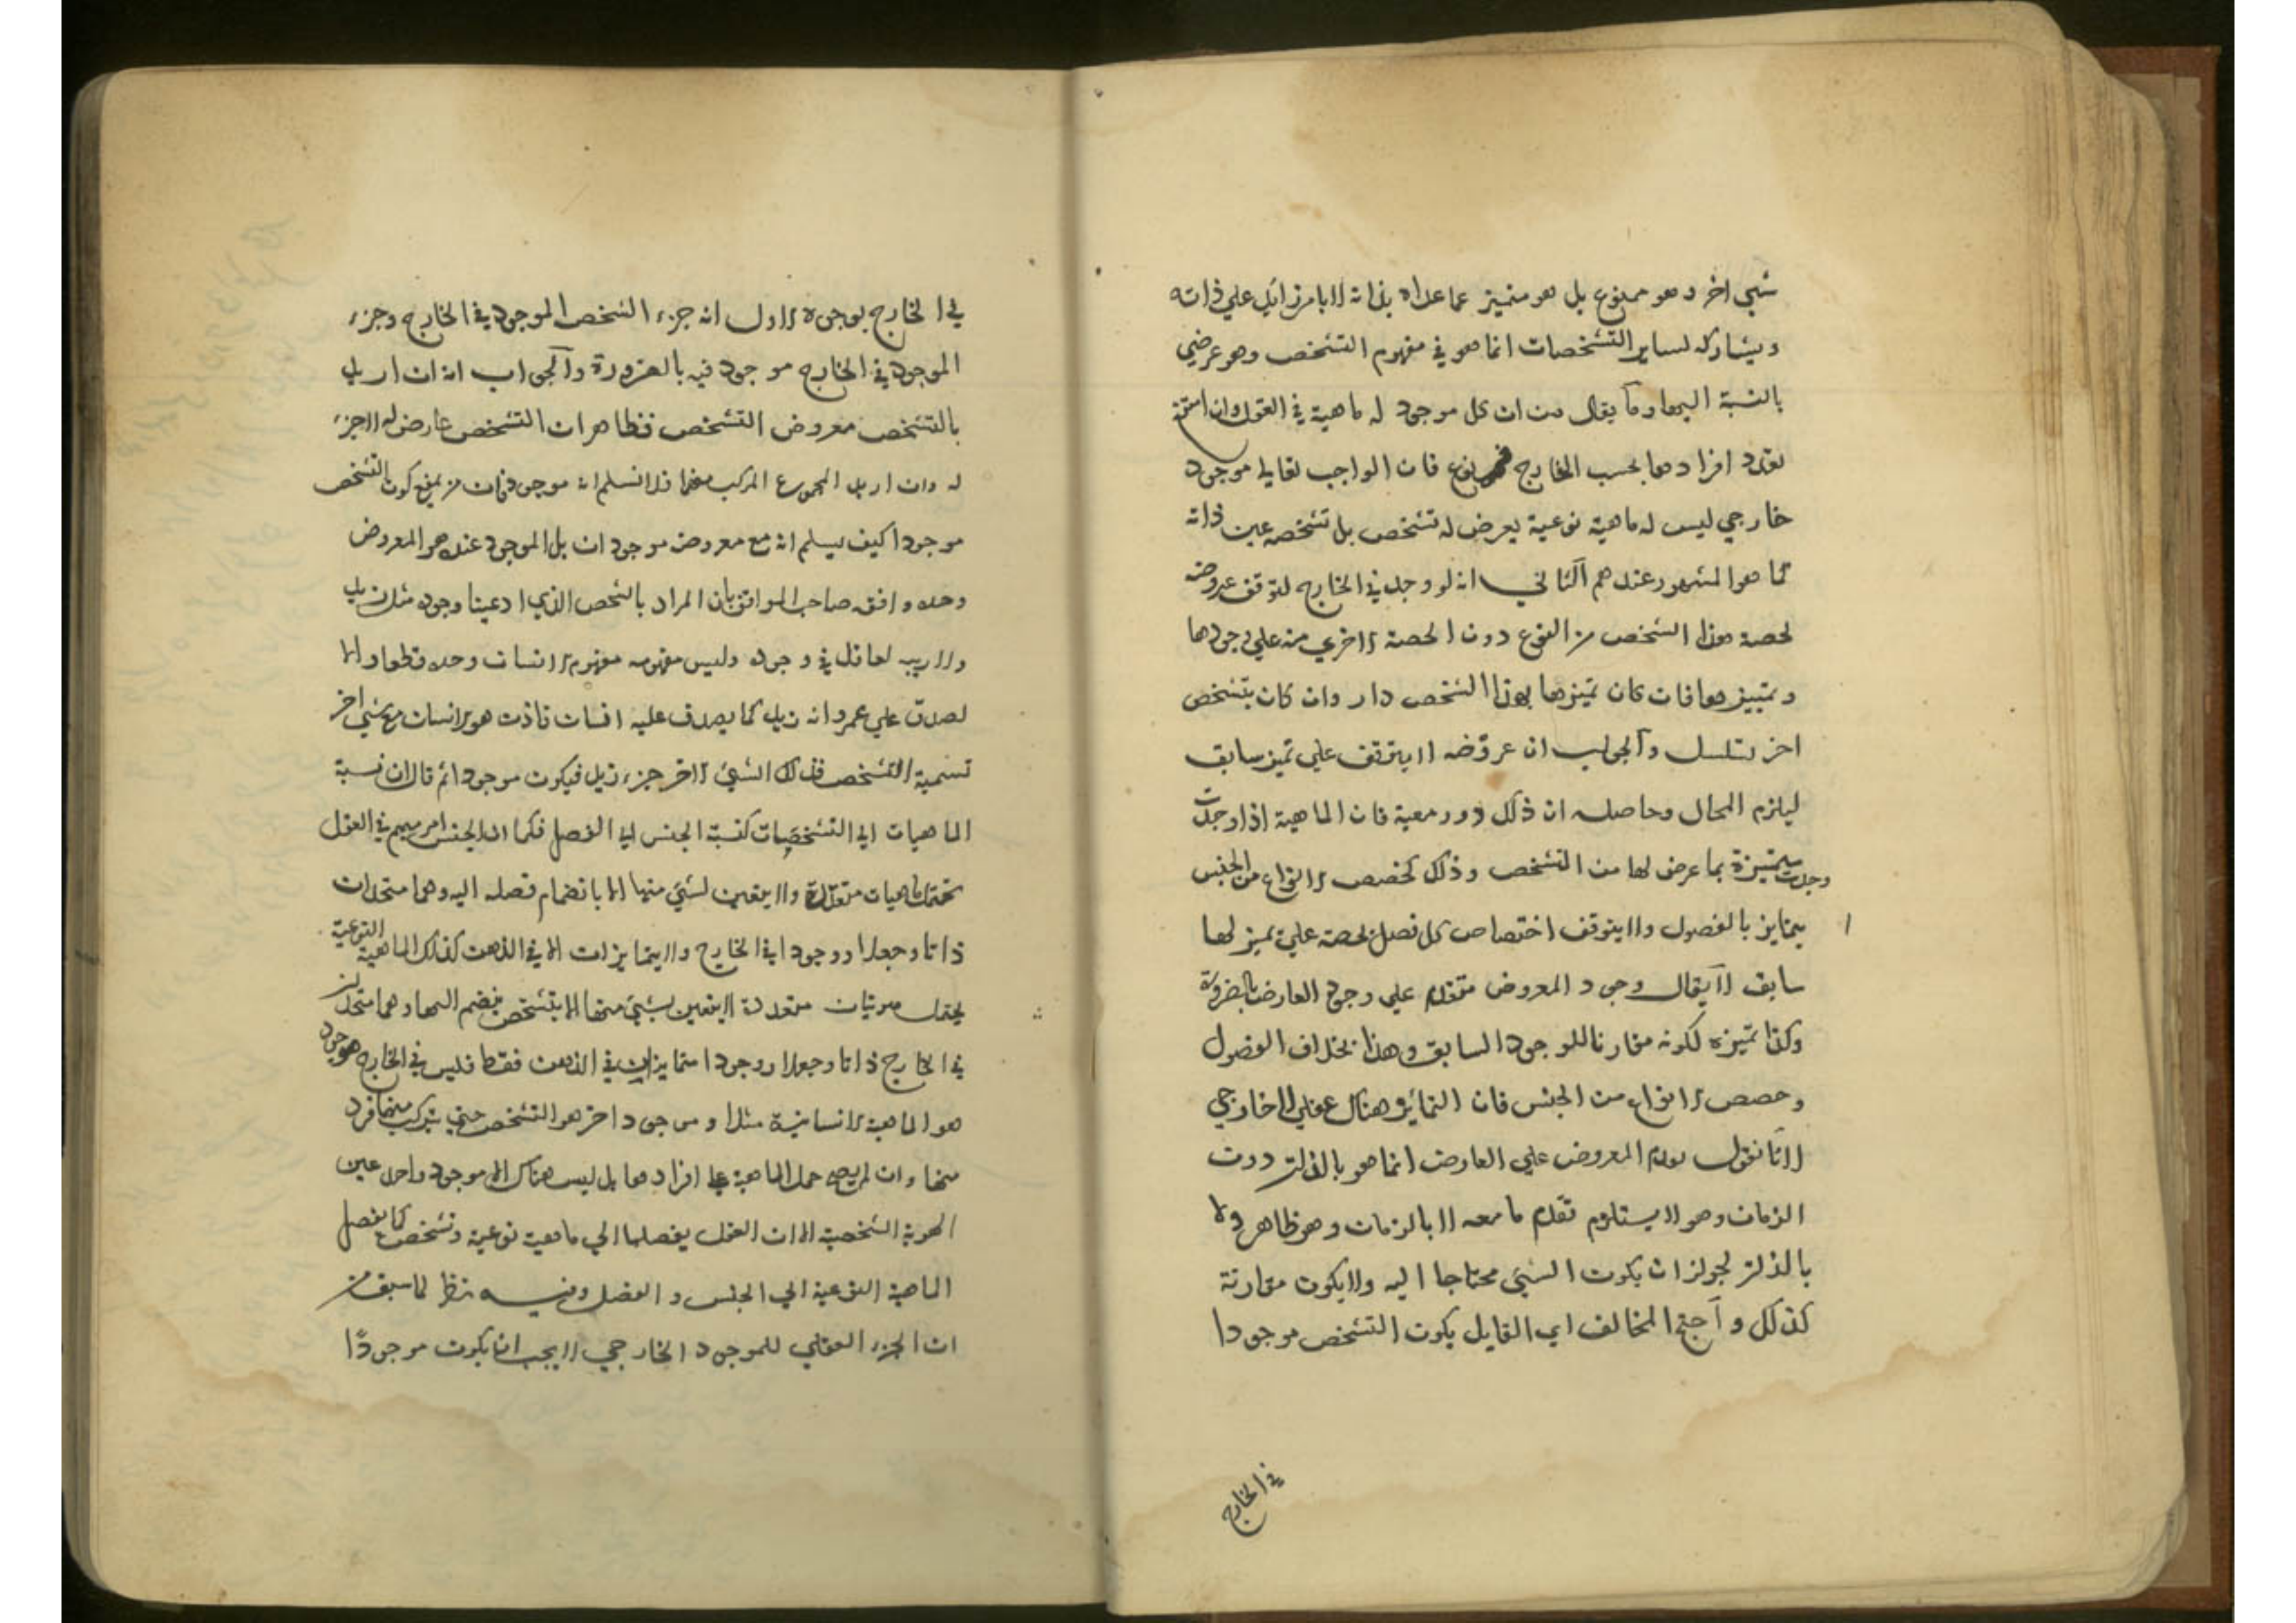 شي اخر وهو ممنوع بل هو متميز عما عداه بذاته لا بامر زايد علي ذاته
ويشاركه لساير التشخصات انما هو في مفهوم التشخص وهو عرضي
بالنسبة اليها وما يقال من ان كل موجود له ماهية في العقل وان امتنع
تعدد افرادها بحسب الخارج فممنوع فان الواجب تعالي موجود
خارجي ليس له ماهية نوعية يعرض له تشخص بل تشخصه عين ذاته
كما هو المشهور عندهم الثاني انه لو وجد في الخارج لتوقف عروضه
لحصة هذا الشخص من النوع دون الحصة الاخري منه علي وجودها
وتمييزها فان كان تميزها بهذا التشخص دار وان كان بتشخص
اخر تسلسل والجواب ان عروضه لا يتوقف علي تميز سابق
ليلزم المحال وحاصله ان ذلك دور معية فان الماهية اذا وجدت
وجدت متميزة بما عرض لها من التشخص وذلك كحصص الانواع من الجنس
يتمايز بالفصول ولا يتوقف اختصاص كل فصل بحصة علي تميز لها
سابق لا يقال وجود المعروض متقدم علي وجود العارض بالضرورة
وكذا تميزه لكونه مقارنا للوجود السابق وهذا بخلاف الفصول
وحصص الانواع من الجنس فان التمايز هناك عقلي لا خارجي
لانا نقول تقدم المعروض علي العارض انما هو بالذات دون
الزمان وهو لا يستلزم تقدم ما معه لا بالزمان وهو ظاهر ولا
بالذات لجواز ان يكون الشي محتاجا اليه ولا يكون مقارنة
كذلك واحتج المخالف اي القايل بكون التشخص موجودا
في الخارج
في الخارج بوجوه الاول انه جزء الشخص الموجود في الخارج وجزء
الموجود في الخارج موجود فيه بالضرورة والجواب انه ان اريد
بالتشخص معروض التشخص فظاهر ان التشخص عارض له لا جزء
له وان اريد المجموع المركب منهما فلا نسلم انه موجود فان من يمنع كون التشخص
موجودا كيف يسلم انه مع معروضه موجودان بل الموجود عنده هو المعروض
وحده وافق صاحب المواقف بان المراد بالشخص الذي ادعينا وجوده مثل زيد
ولا ريب لعاقل في وجوده وليس مفهومه مفهوم الانسان وحده قطعا والا
لصدق علي عمرو انه زيد كما يصدق عليه انسان فاذن هو الانسان مع شي اخر
تسمية التشخص فذلك الشي الاخر جزء زيد فيكون موجودا ثم قال ان نسبة
الماهيات الي التشخصات كنسبة الجنس الي الفصل فكما ان الجنس امر مبهم في العقل
تحتمل ماهيات متعددة ولا يتعين لشي منها الا بانضمام فصله اليه وهما متحدان
ذاتا وجعلا ووجودا في الخارج ولا يتمايزان الا في الذهن كذلك الماهية النوعية
يحتمل هويات متعددة لا يتعين بشي منها الا بتشخص ينضم اليها وهما متحدان
في الخارج ذاتا وجعلا ووجودا متمايزان في الذهن فقط فليس في الخارج موجود
هو الماهية الانسانية مثلا وموجود اخر هو التشخص حتي يتركب منهما فرد
منها وان لم يصح حمل الماهية علي افرادها بل ليس هناك الا موجود واحد عين
الهوية الشخصية الا ان العقل يفصلها الي ماهية نوعية وتشخص كما يفصل
الماهية النوعية الي الجنس والفصل وفيه نظر لما سبق من
ان الجزء العقلي للموجود الخارجي لا يجب ان يكون موجودا